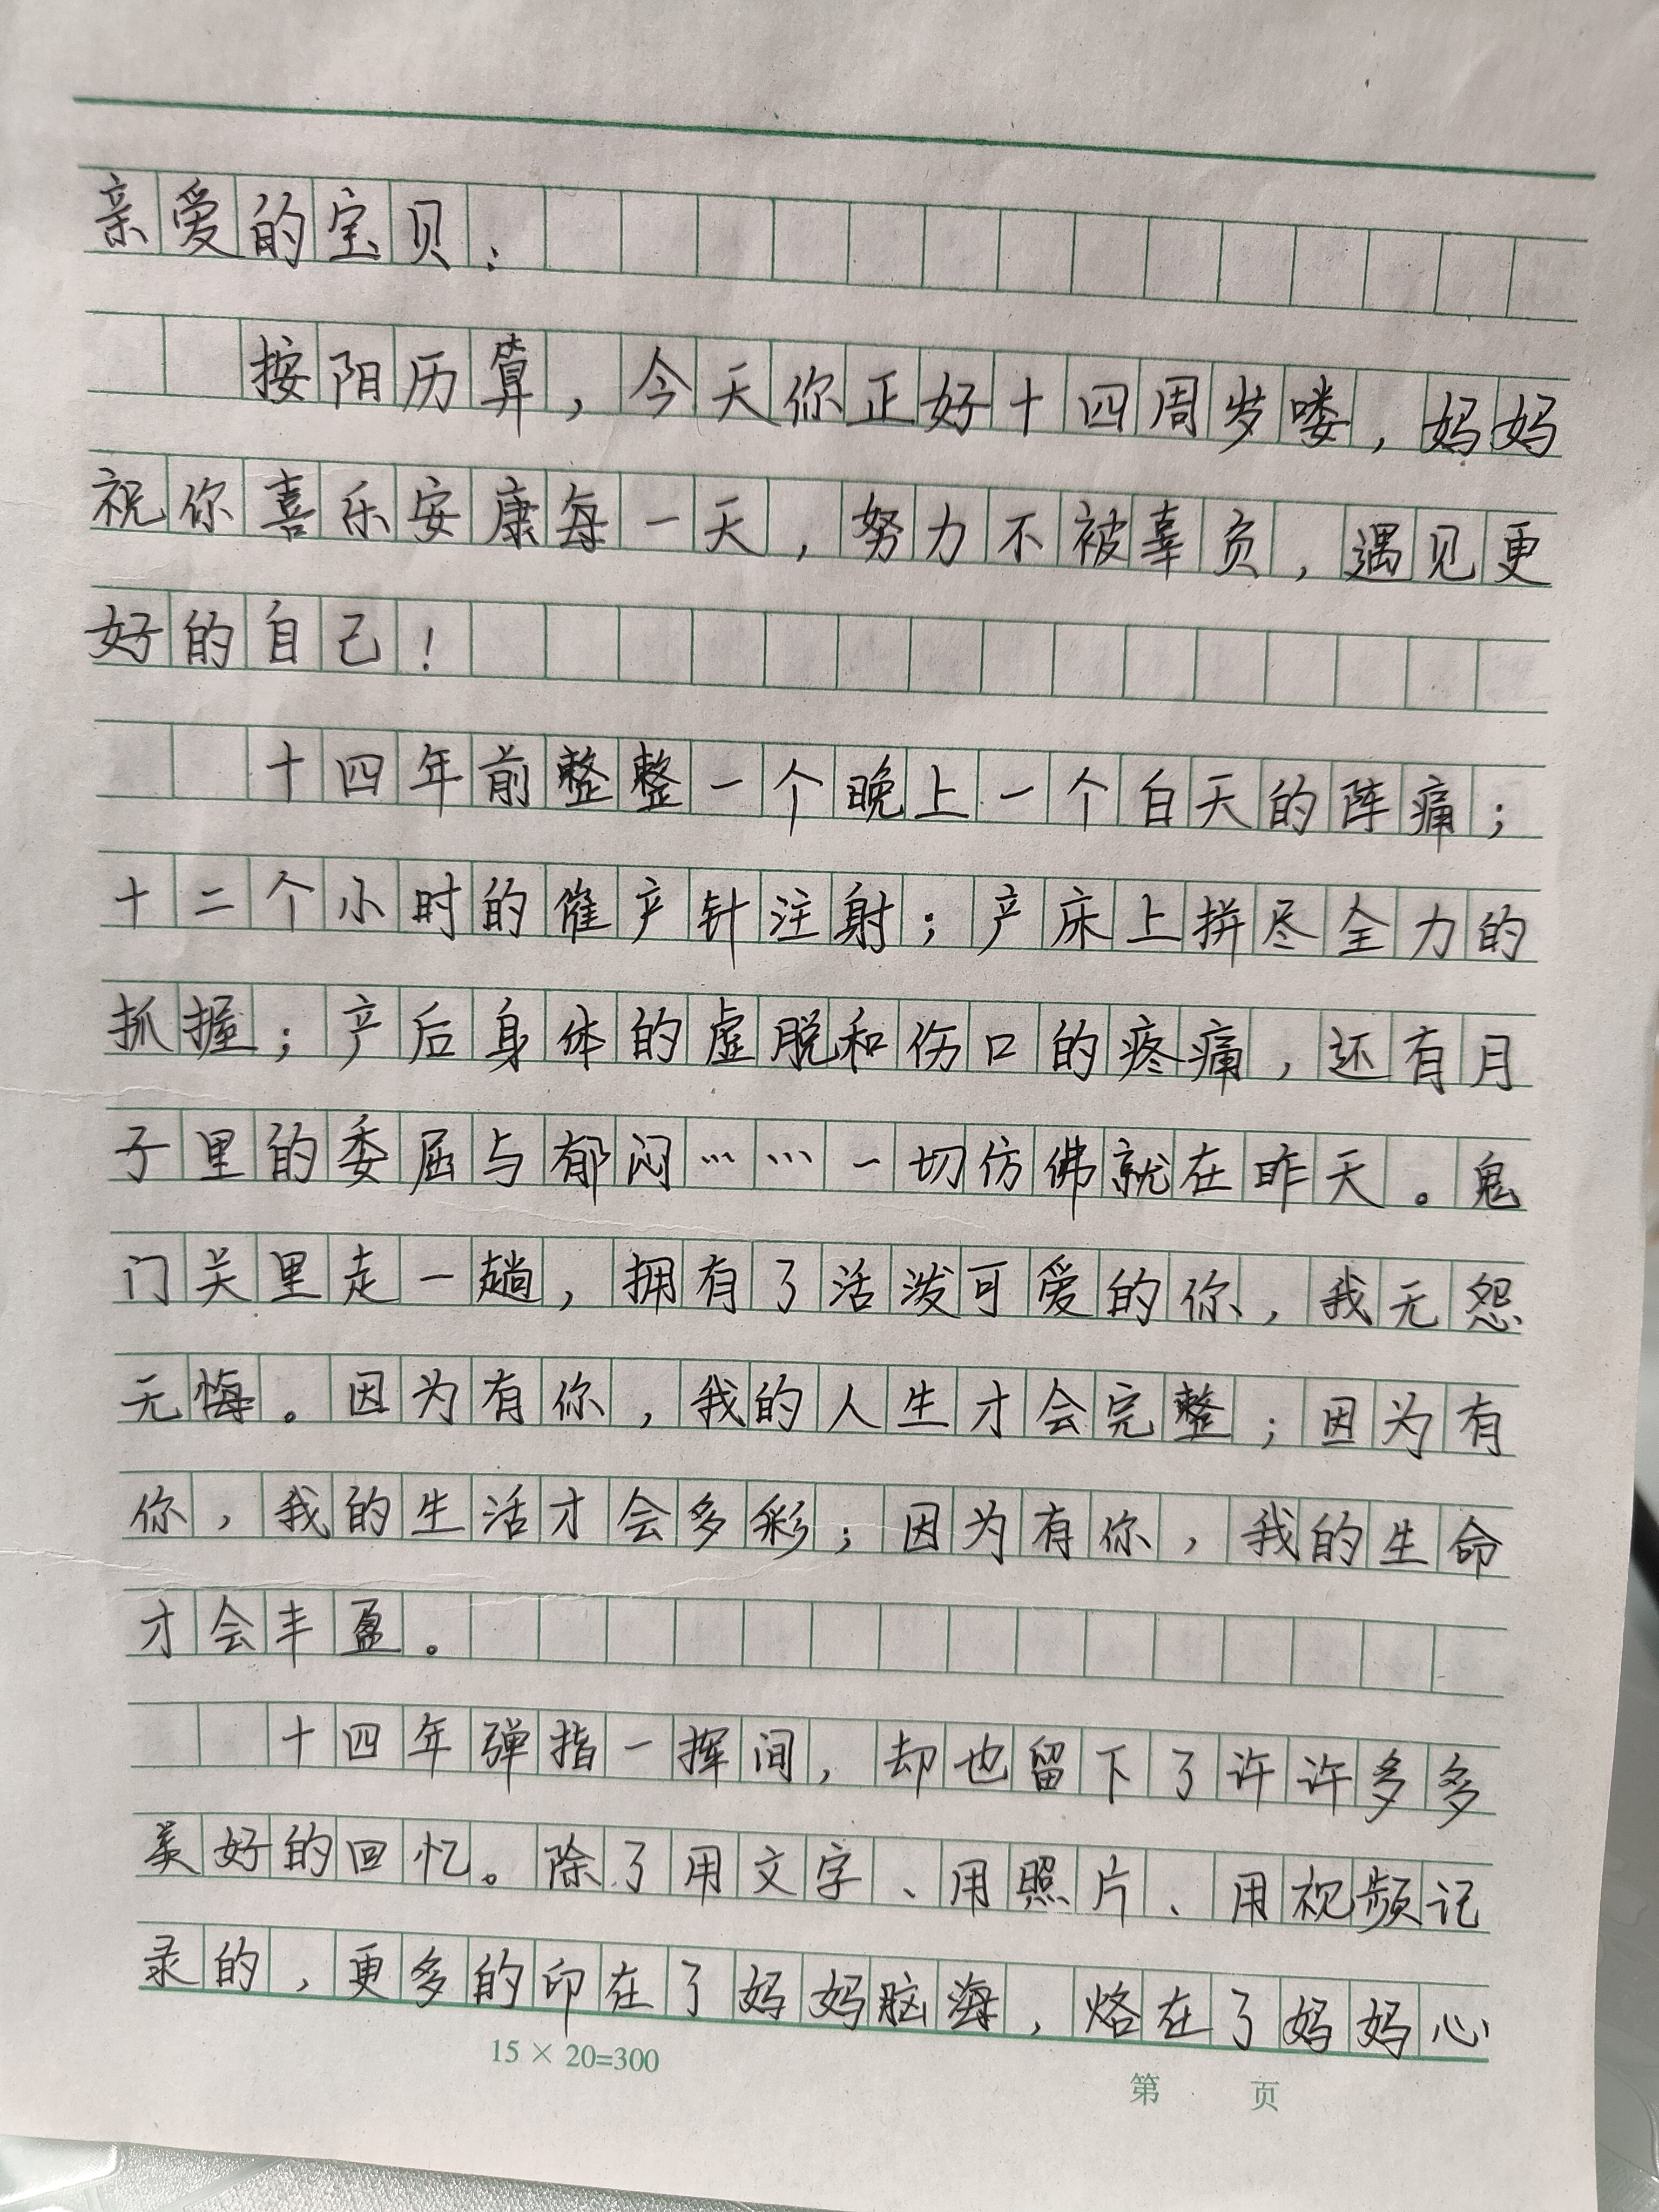 亲爱的宝贝：
按阳历算，今天你正好十四周岁喽，妈妈
祝你喜乐安康每一天，努力不被辜负，遇见更
好的自己！
十四年前整整一个晚上一个白天的阵痛；
十二个小时的催产针注射；产床上拼尽全力的
抓握；产后身体的虚脱和伤口的疼痛，还有月
子里的委屈与郁闷……一切仿佛就在昨天。鬼
门关里走一趟，拥有了活泼可爱的你，我无怨
无悔。因为有你，我的人生才会完整；因为有
你，我的生活才会多彩；因为有你，我的生命
才会丰盈。
十四年弹指一挥间，却也留下了许许多多
美好的回忆。除了用文字、用照片、用视频记
录的，更多的印在了妈妈脑海，烙在了妈妈心
15×20=300
第 页